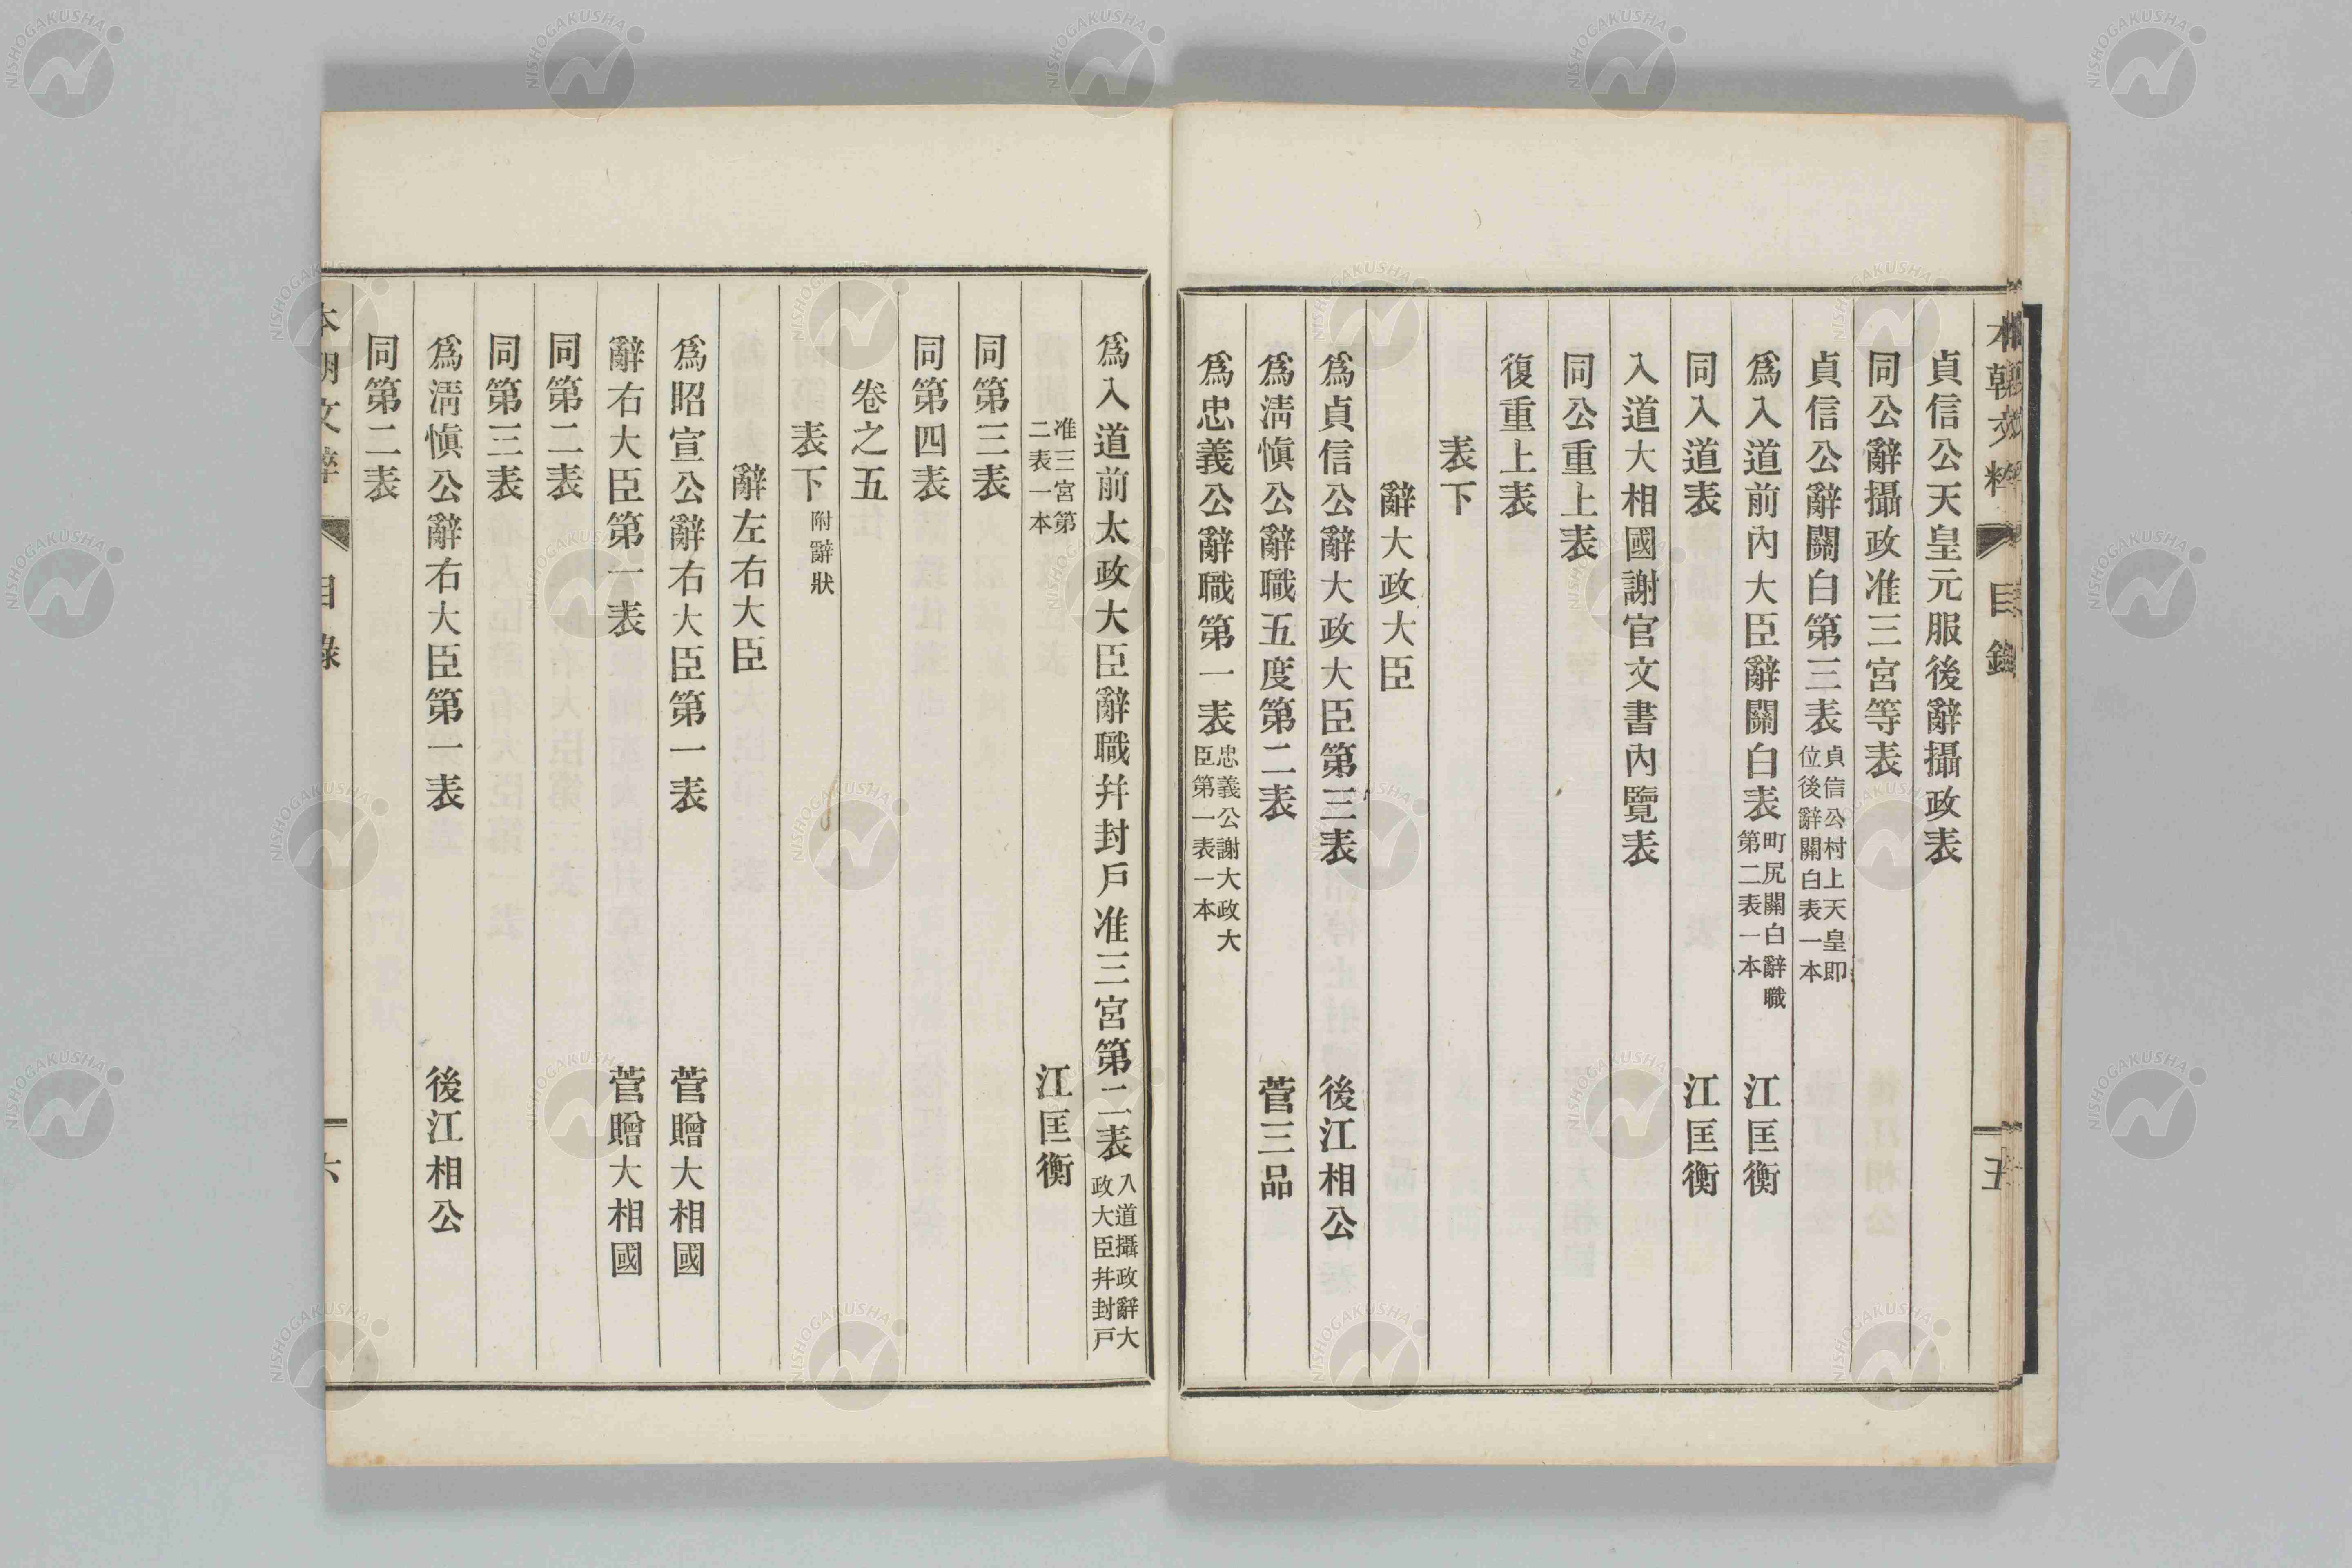 本朝文粹 目錄 五
貞信公天皇元服後辭攝政表
同公辭攝政准三宮等表
貞信公辭關白第三表 貞信公村上天皇即位後辭關白表一本
爲入道前內大臣辭關白表 町尻關白辭職第二表一本 江匡衡
同入道表 江匡衡
入道大相國謝官文書內覽表
同公重上表
復重上表
表下
辭大政大臣
爲貞信公辭大政大臣第三表 後江相公
爲淸愼公辭職五度第二表 菅三品
爲忠義公辭職第一表 忠義公謝大政大臣第一表一本
爲入道前太政大臣辭職幷封戶准三宮第二表 入道攝政辭大政大臣幷封戶
准三宮第二表一本 江匡衡
同第三表
同第四表
卷之五
表下 附辭狀
辭左右大臣
爲昭宣公辭右大臣第一表 菅贈大相國
辭右大臣第一表 菅贈大相國
同第二表
同第三表
爲淸愼公辭右大臣第一表 後江相公
同第二表
本朝文粹 目錄 六
NISHOGAKUSHA